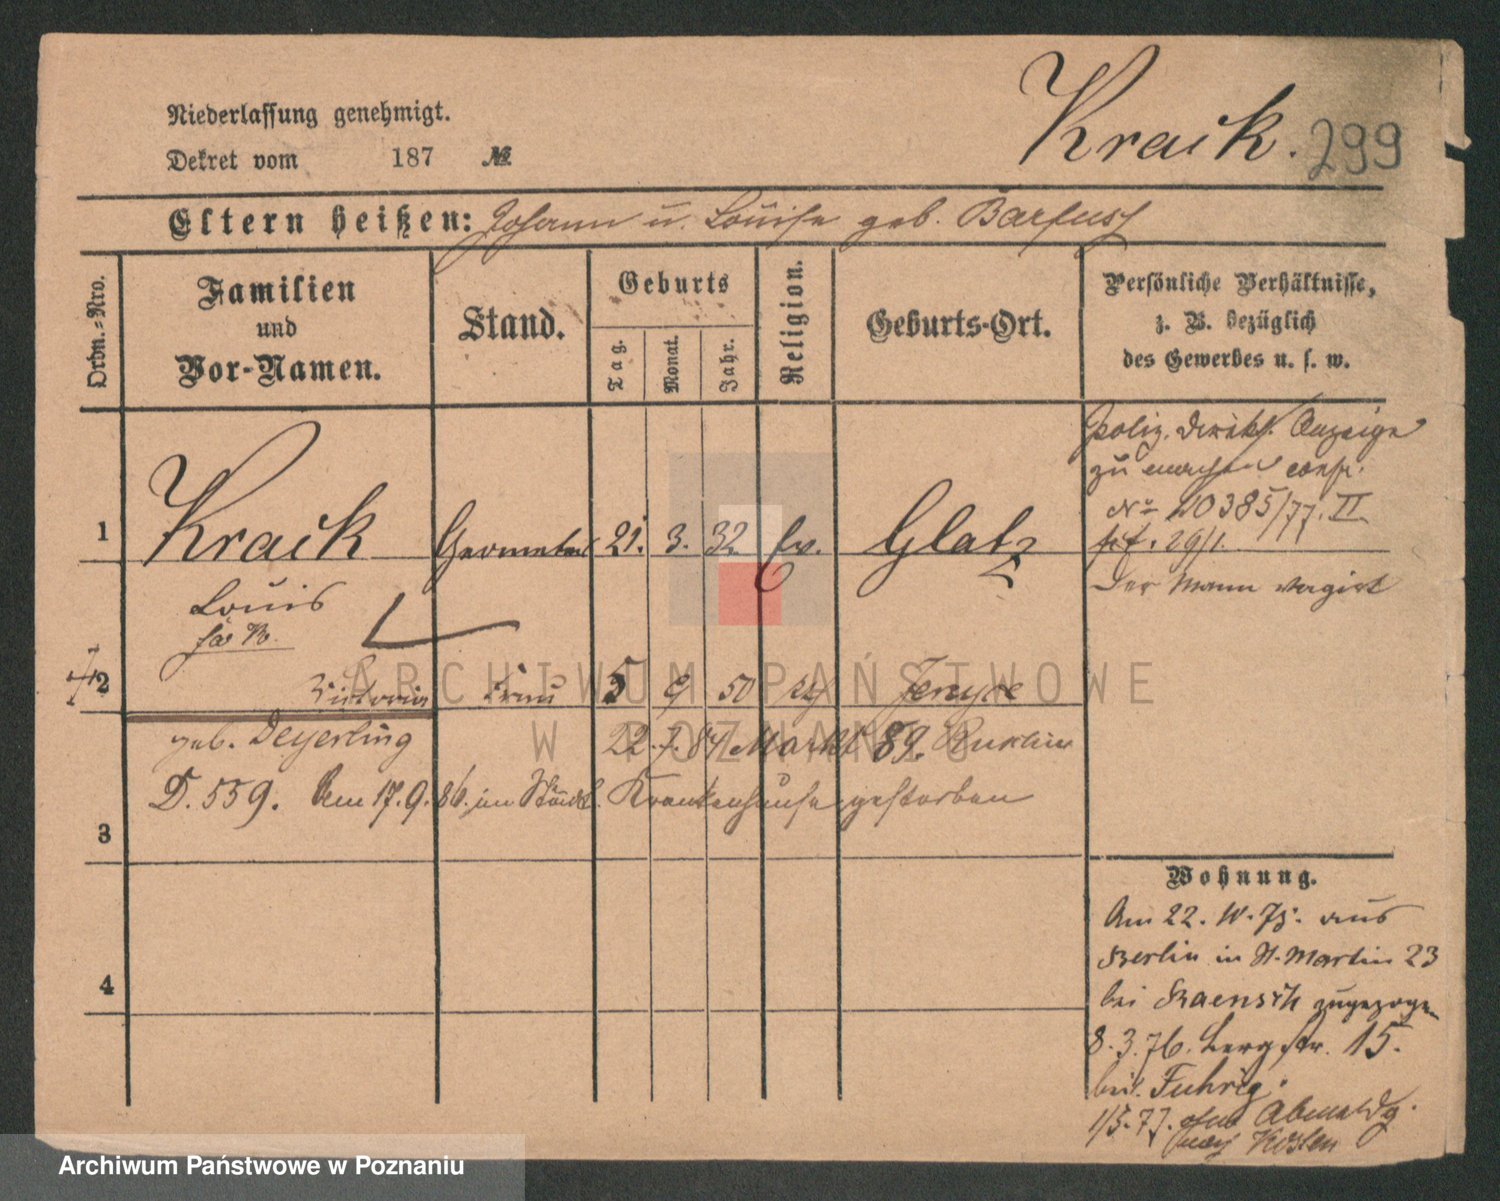 Niederlassung genehmigt.
Dekret vom 187 №
Kraik. 299
Eltern heißen: Johann u. Louise geb. Barfuss
Ordn.-Nro.
Familien
und
Vor-Namen.
Stand.
Geburts
Tag.
Monat.
Jahr.
Religion.
Geburts-Ort.
Persönliche Verhältnisse,
z. B. bezüglich
des Gewerbes u. s. w.
Poliz. Direkt. Anzeige
zu machen
No 385/77. II
29/1.
Der Mann
1 Kraik Geometer 21. 3. 32 Ev. Glatz
Louis
2 Frau 5 9 50
geb. Deyerling
22. 7. 84 Markt 89.
D. 559. Am 17. 9. 86. im Städt. Krankenhause gestorben
3
4
Wohnung.
Am 22. aus
Berlin in St. Martin 23
bei zugezogen
8. 3. 76. Bergstr. 15.
bei Fuhrig.
1/5. 77. ohne Abmeldg.
nach Kosten
ARCHIWUM PAŃSTWOWE
W POZNANIU
Archiwum Państwowe w Poznaniu